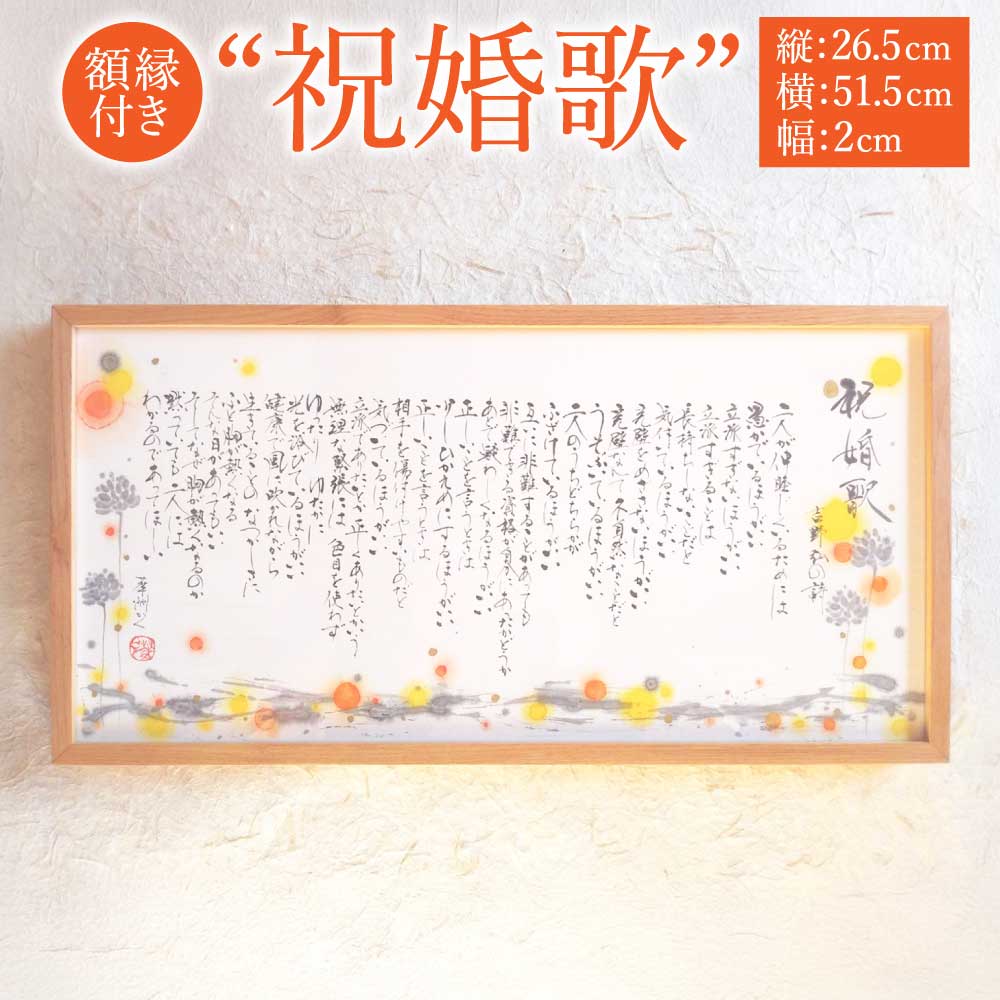 額縁
付き
“祝婚歌”
縦：26.5cm
横：51.5cm
幅：2cm
祝婚歌
吉野弘の詩
二人が仲睦じくいるためには
愚かでいるほうがいい
立派すぎないほうがいい
立派すぎることは
長持ちしないことだと
気付いているほうがいい
完璧をめざさないほうがいい
完璧なんて不自然なことだと
うそぶいているほうがいい
二人のうちどちらかが
ふざけているほうがいい
互いに非難することがあっても
非難できる資格が自分にあったかどうか
あとで疑わしくなるほうがいい
正しいことを言うときは
少しひかえめにするほうがいい
正しいことを言うときは
相手を傷つけやすいものだと
気づいているほうがいい
立派でありたいとか正しくありたいとかいう
無理な緊張には 色目を使わず
ゆったり ゆたかに
光を浴びているほうがいい
健康で 風に吹かれながら
生きていることのなつかしさに
ふと胸が熱くなる
そんな日があってもいい
そしてなぜ胸が熱くなるのか
黙っていても二人には
わかるのであってほしい